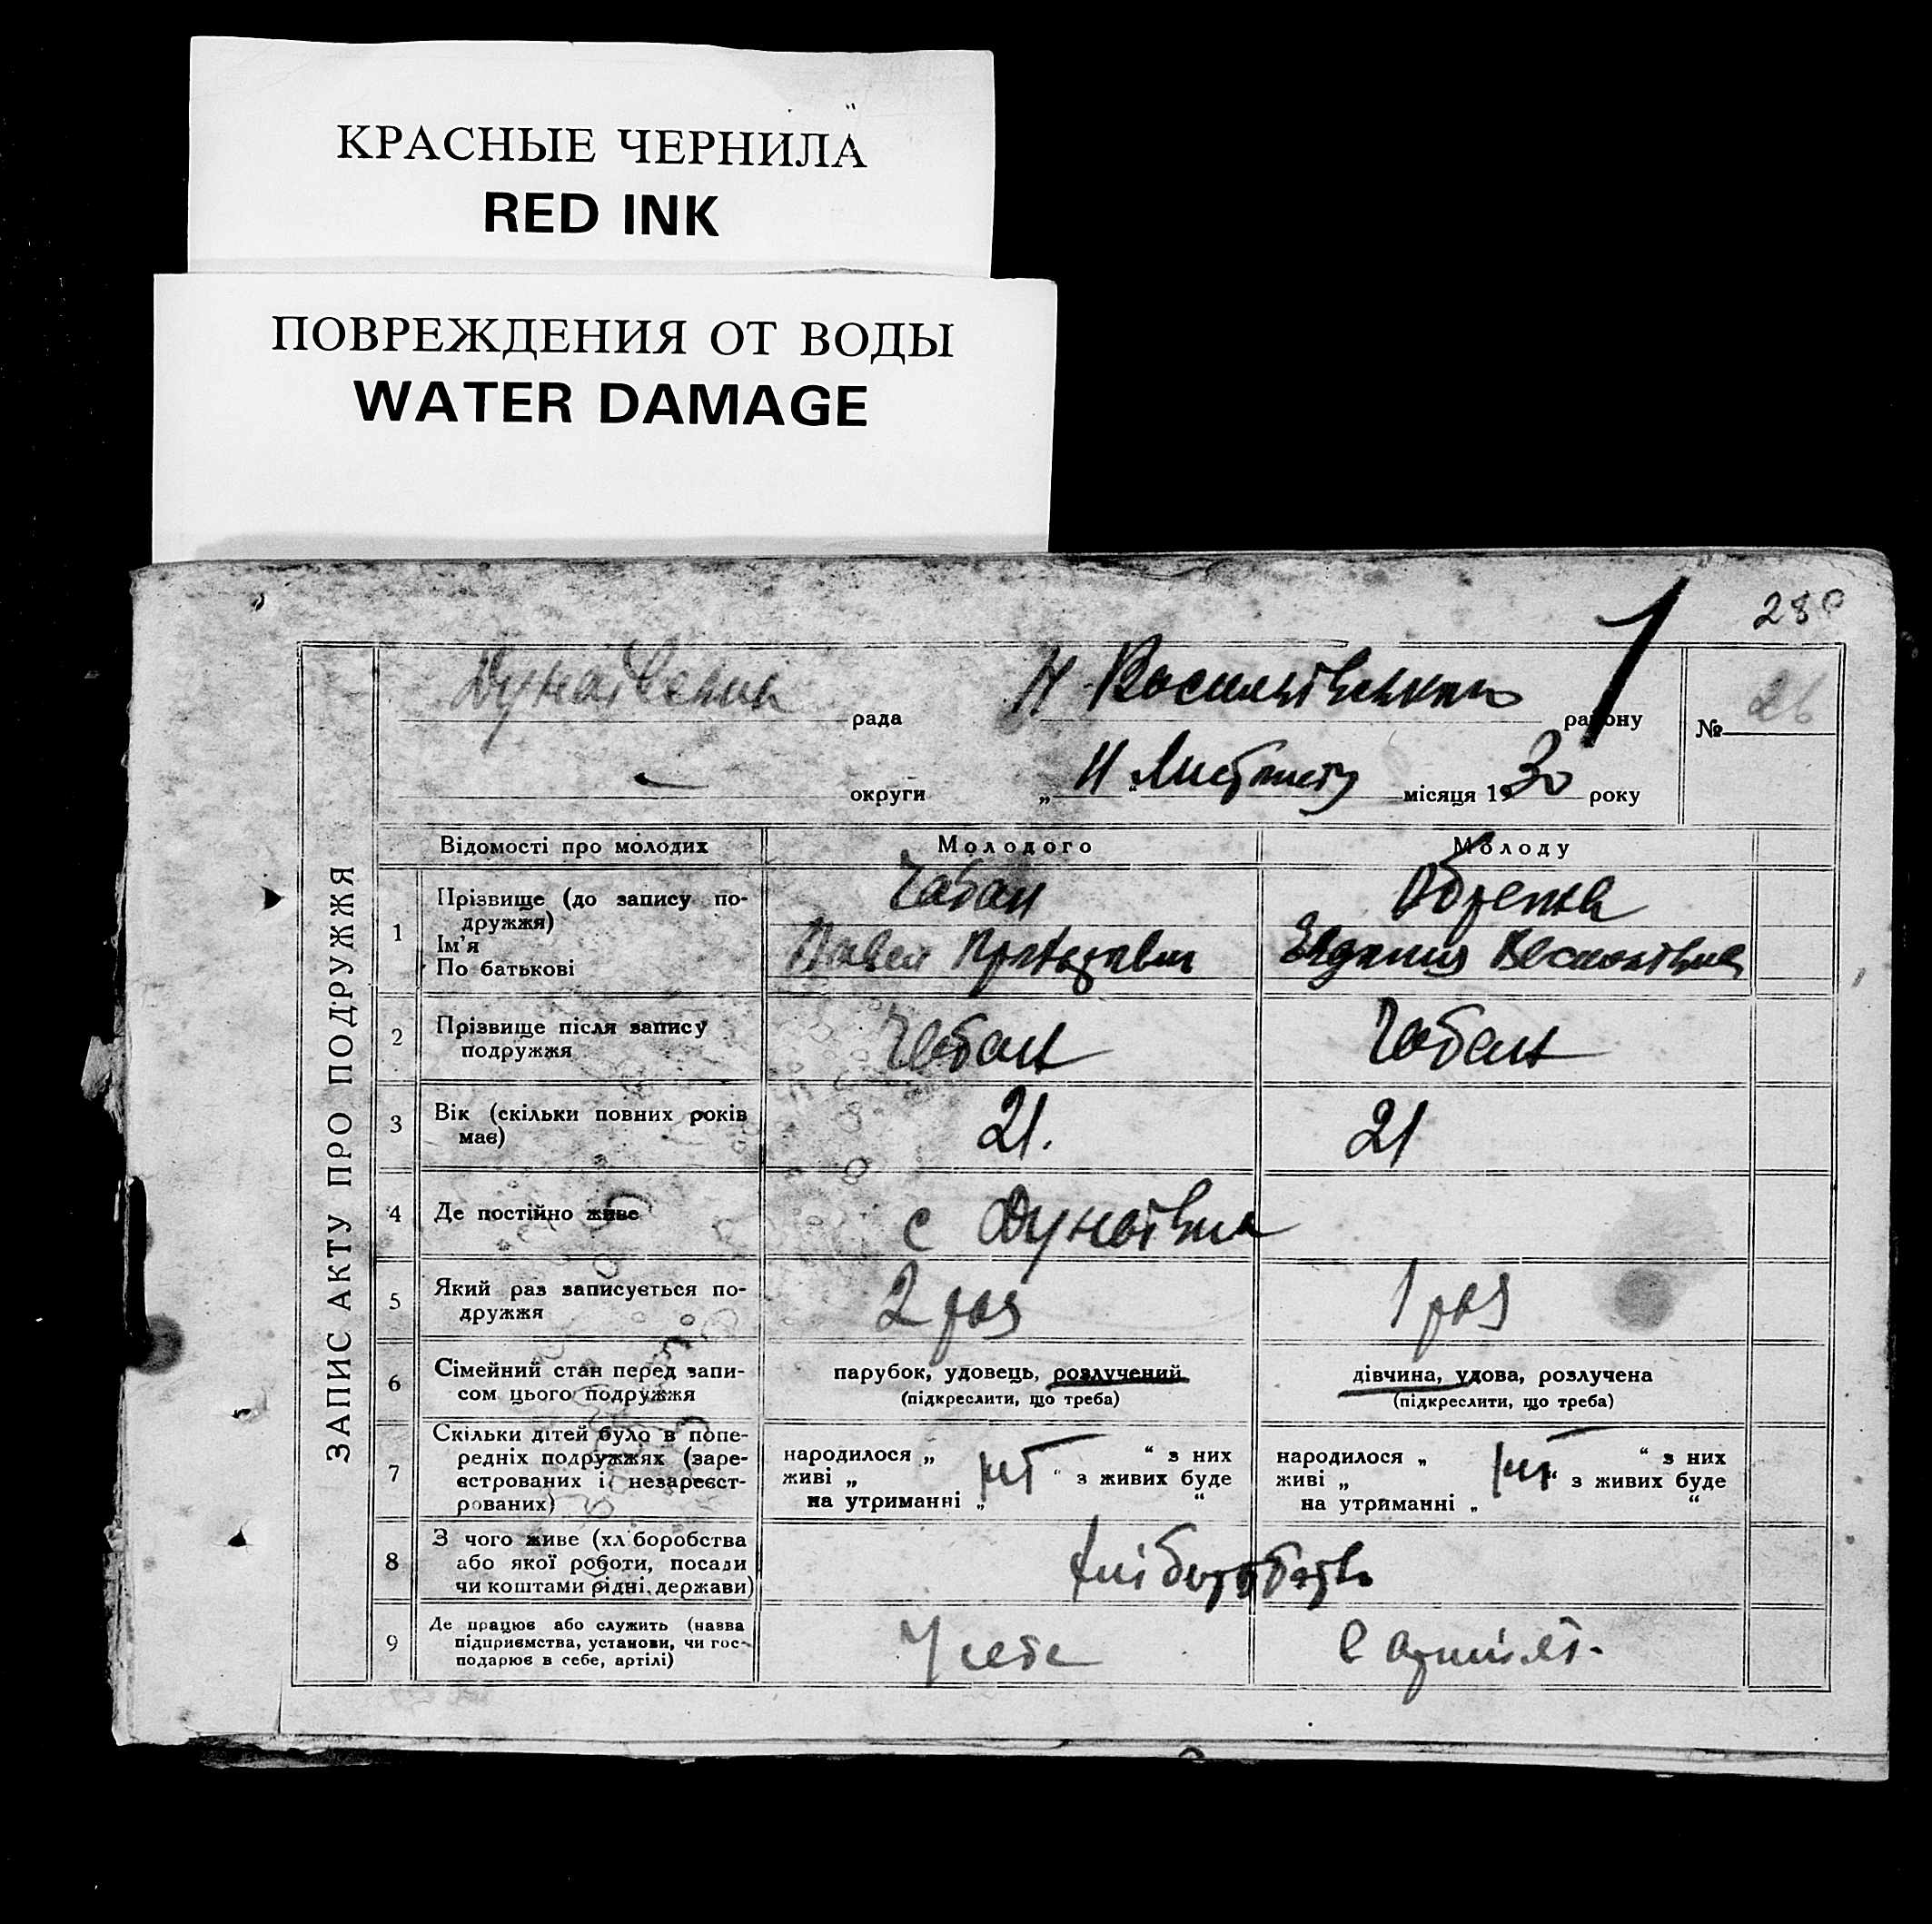 КРАСНЫЕ ЧЕРНИЛА
RED INK
ПОВРЕЖДЕНИЯ ОТ ВОДЫ
WATER DAMAGE
28
ЗАПИС АКТУ ПРО ПОДРУЖЖЯ
рада Н району № 26
округи „ місяця 1930 року
Відомості про молодих Молодого Молоду
1 Прізвище (до запису по-
дружжя) Чабан
Ім'я
По батькові Павел
2 Прізвище після запису
подружжя Чабан Чабан
3 Вік (скільки повних років
має) 21. 21
4 Де постійно живе с Дунаївка
5 Який раз записується по-
дружжя 2 раз 1 раз
6 Сімейний стан перед запи-
сом цього подружжя
парубок, удовець, розлучений
(підкреслити, що треба)
дівчина, удова, розлучена
(підкреслити, що треба)
7 Скільки дітей було в попе-
редніх подружжях (заре-
єстрованих і незареєст-
рованих)
народилося „ “ з них
живі „ ніт “ з живих буде
на утриманні „ “
народилося „ “ з них
живі „ ніт “ з живих буде
на утриманні „ “
8 З чого живе (хліборобства
або якої роботи, посади
чи коштами рідні, держави)
9 Де працює або служить (назва
підприємства, установи, чи гос-
подарює в себе, артілі) У себе в